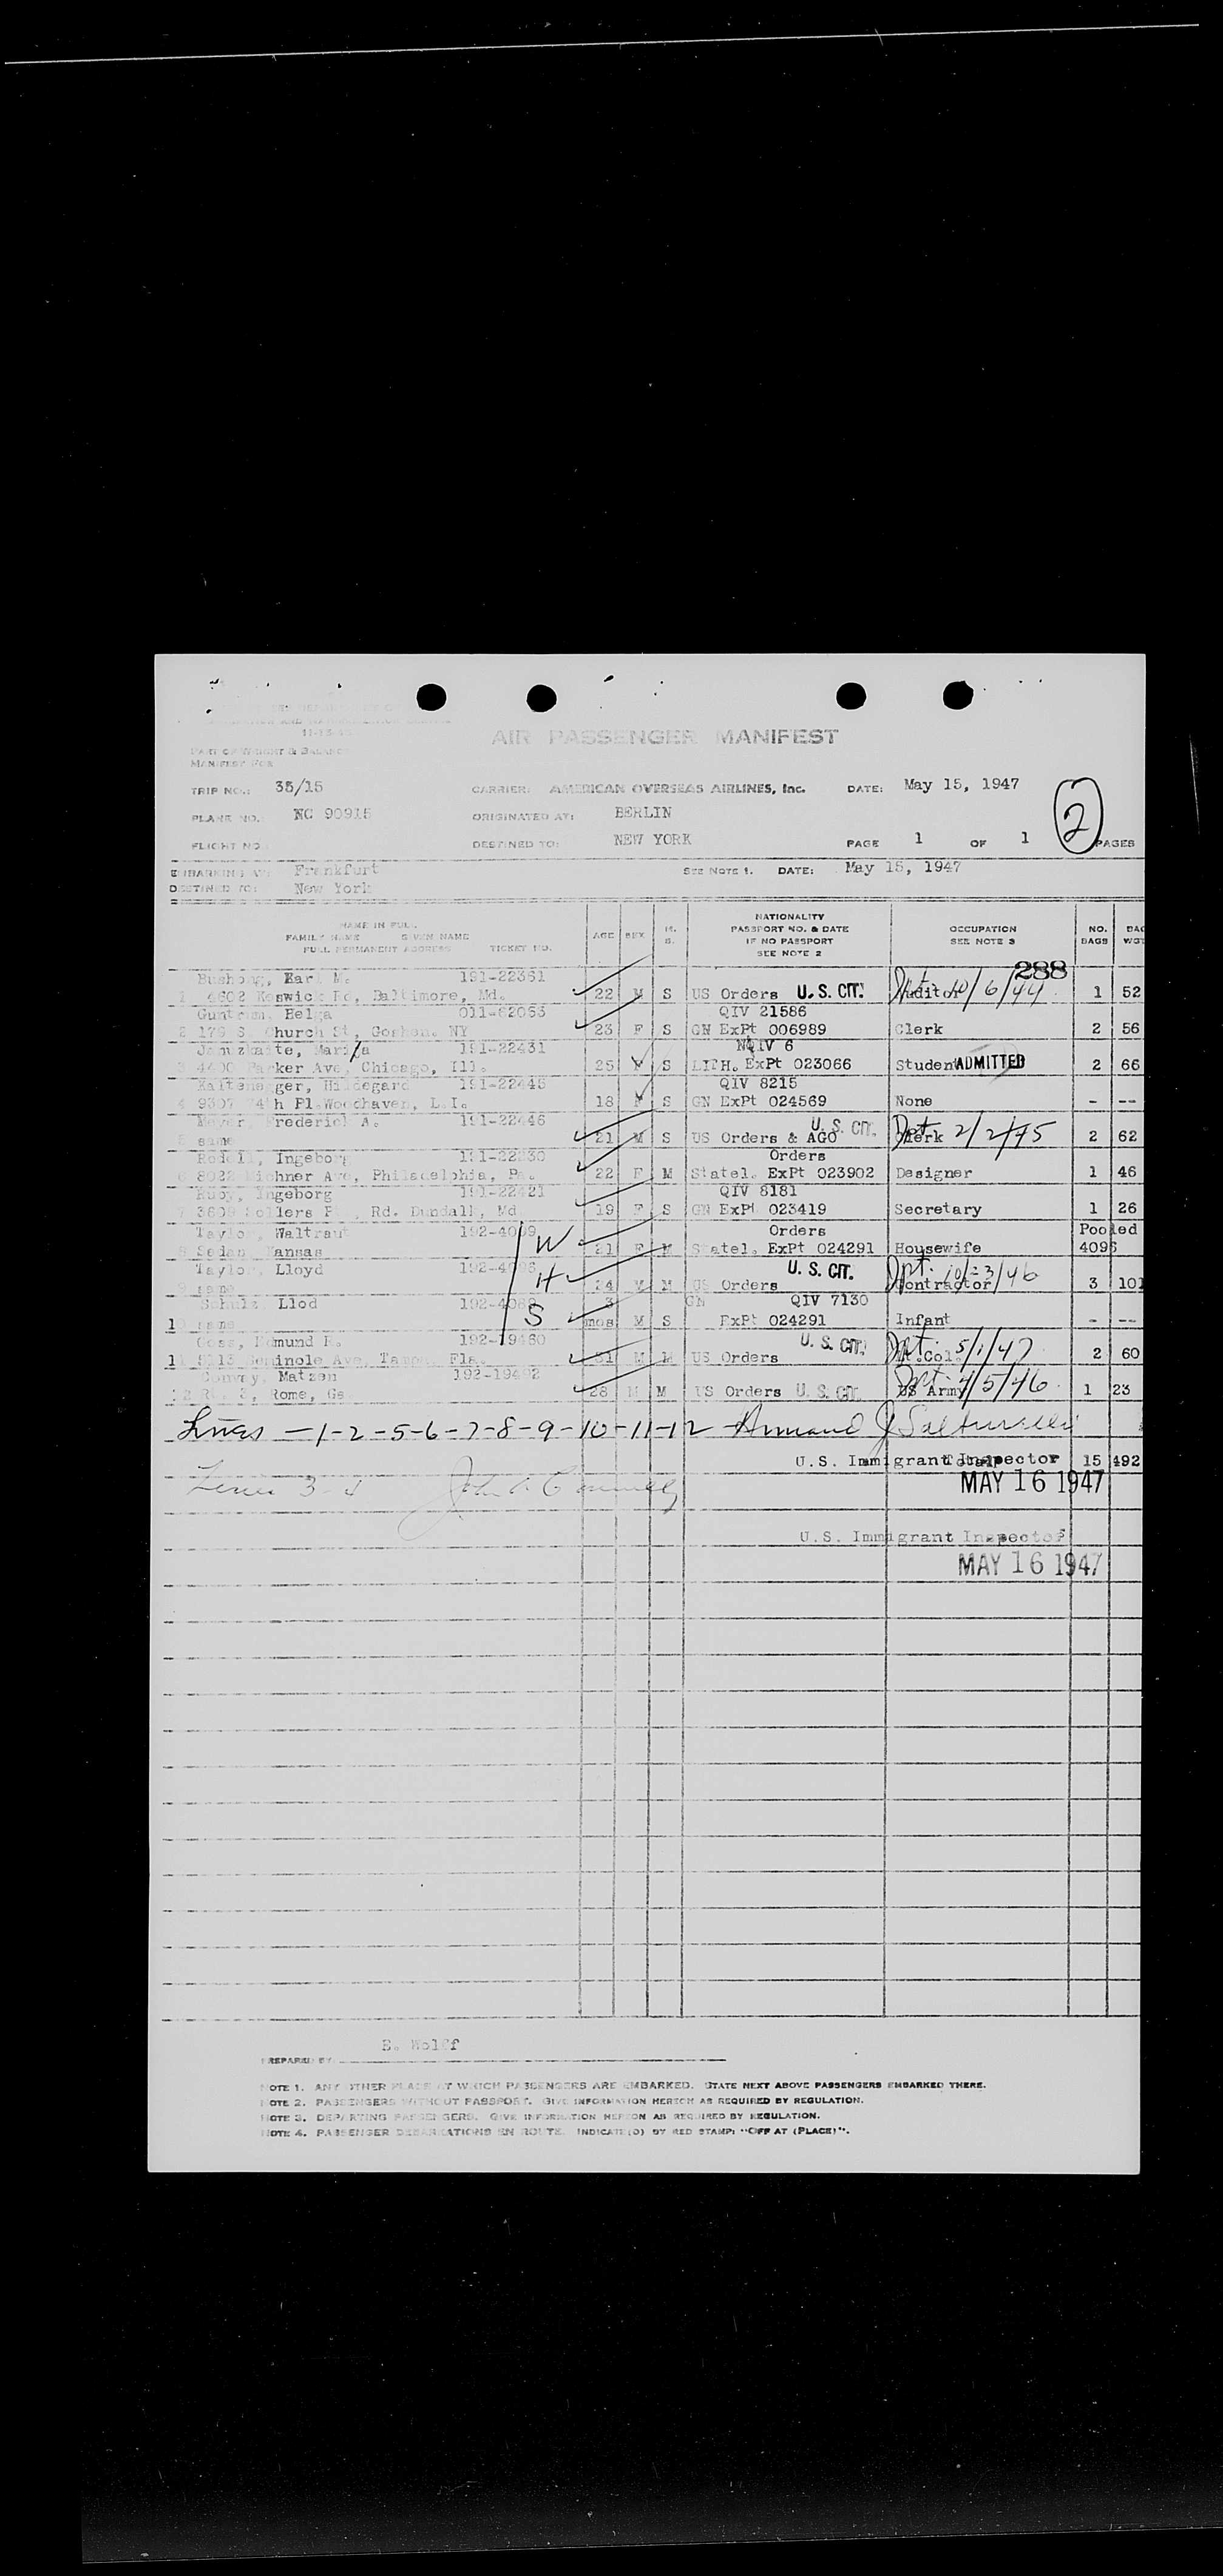 11-15-45
AIR PASSENGER MANIFEST
PART OF WEIGHT & BALANCE
MANIFEST FOR
TRIP NO.: 35/15 CARRIER: AMERICAN OVERSEAS AIRLINES, Inc. DATE: May 15, 1947
PLANE NO. NC 90915 ORIGINATED AT: BERLIN
FLIGHT NO. DESTINED TO: NEW YORK PAGE 1 OF 1 PAGES
2
EMBARKING AT: Frankfurt SEE NOTE 1. DATE: May 15, 1947
DESTINED TO: New York
NAME IN FULL
FAMILY NAME GIVEN NAME
FULL PERMANENT ADDRESS TICKET NO.
AGE SEX M. S.
NATIONALITY
PASSPORT NO. & DATE
IF NO PASSPORT
SEE NOTE 2
OCCUPATION
SEE NOTE 3
NO. BAGS
288
Bushong, Earl M. 191-22361
1 4602 Keswick Rd, Baltimore, Md. 22 M S US Orders U. S. CIT. Auditor 10/6/44 1 52
011-82063 QIV 21586
2 179 S. Church St, Goshen. NY 23 F S GN ExPt 006989 Clerk 2 56
191-22431 NQIV 6
3 4400 Parker Ave, Chicago, Ill. 25 F S LITH. ExPt 023066 Student ADMITTED 2 66
Hildegard 191-22445 QIV 8215
4 9307 74th Pl.Woodhaven, L.I. 18 F S GN ExPt 024569 None - --
Meyer, Frederick A. 191-22446 U. S. CIT.
5 same 21 M S US Orders & AGO Clerk Dpt. 2/2/45 2 62
Ingeborg 191-22230 Orders
6 Ave, Philadelphia, Pa. 22 F M Statel. ExPt 023902 Designer 1 46
Ruby, Ingeborg 191-22421 QIV 8181
7 3809 Sollers Rd. Dundalk, Md 19 F S GN ExPt 023419 Secretary 1 26
Taylor, Waltraut W Orders Pooled
8 Sedan, Kansas 21 F M Statel. ExPt 024291 Housewife 4096
Taylor, Lloyd H U. S. CIT. Dpt. 10/23/46
9 same 24 M M US Orders Contractor 3 101
Schulz, Llod S 3 GN QIV 7130
10 same mos M S ExPt 024291 Infant - --
Goss, Edmund R. 192-19460 U. S. CIT. Dpt. 5/1/47
11 Seminole Ave, Tampa, Fla. 31 M M US Orders Lt.Col. 2 60
Conway, Matzen 192-19492 Dpt. 4/5/46
12 Rt. 2, Rome, Ga. 28 M M US Orders U. S. CIT. US Army 1 23
Lines -1-2-5-6-7-8-9-10-11-12 Armand J
U.S. Immigrant Inspector Total 15 492
MAY 16 1947
Lines 3-4 John
U.S. Immigrant Inspector
MAY 16 1947
PREPARED BY E. Wolff
NOTE 1. ANY OTHER PLACE AT WHICH PASSENGERS ARE EMBARKED. STATE NEXT ABOVE PASSENGERS EMBARKED THERE.
NOTE 2. PASSENGERS WITHOUT PASSPORT. GIVE INFORMATION HEREON AS REQUIRED BY REGULATION.
NOTE 3. DEPARTING PASSENGERS. GIVE INFORMATION HEREON AS REQUIRED BY REGULATION.
NOTE 4. PASSENGER DEBARKATIONS EN ROUTE. INDICATE(D) BY RED STAMP: "OFF AT (PLACE)".